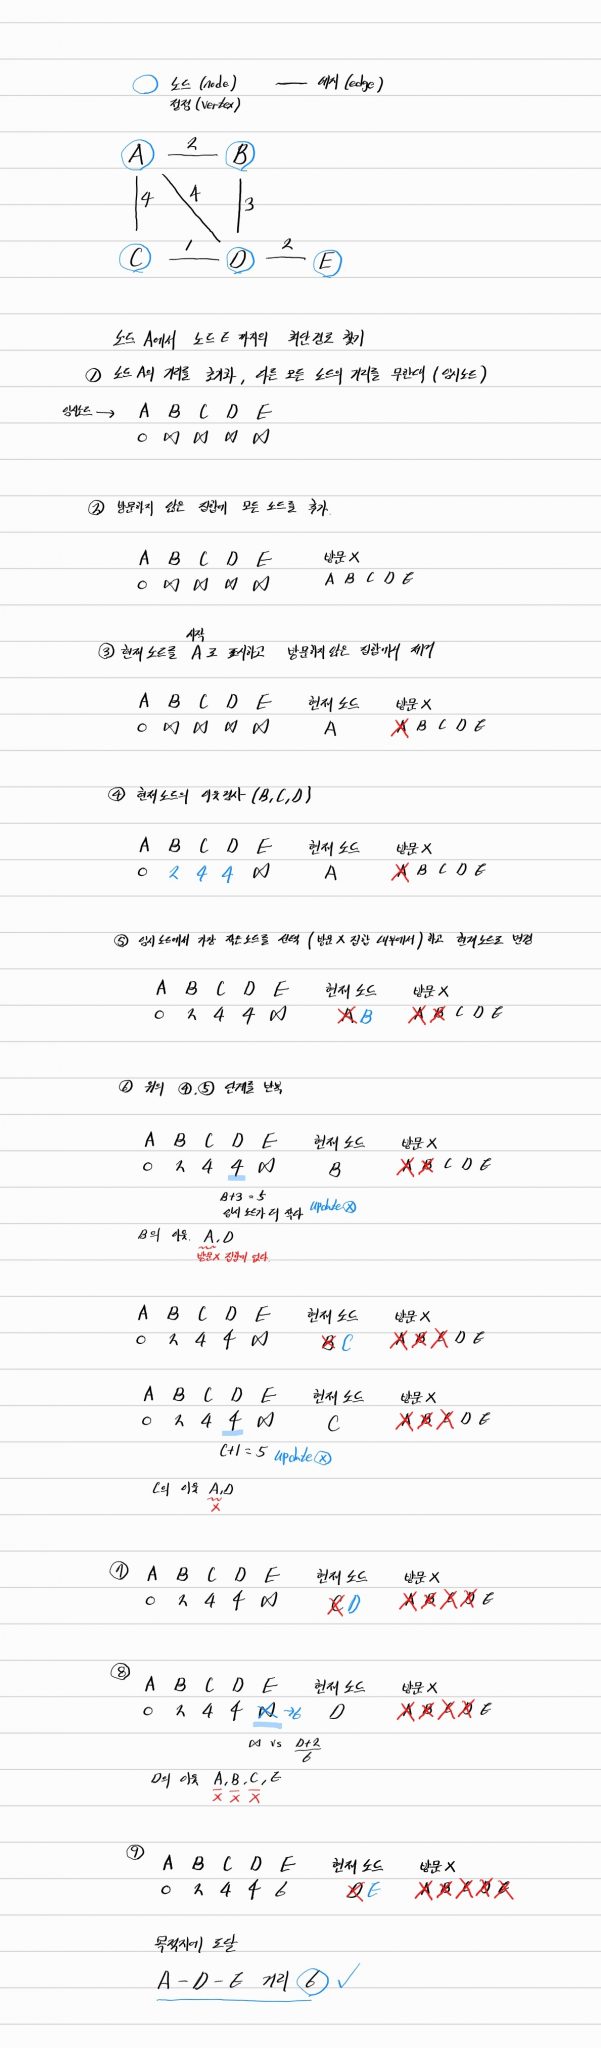 노드 (node) 에지 (edge)
정점 (vertex)
A 2 B
4 4 3
C 1 D 2 E
노드 A에서 노드 E 까지의 최단경로 찾기
① 노드 A의 거리를 초기화, 다른 모든 노드의 거리를 무한대 (임시노드)
임시노드 → A B C D E
0 ∞ ∞ ∞ ∞
② 방문하지 않은 집합에 모든 노드를 추가.
A B C D E 방문 X
0 ∞ ∞ ∞ ∞ A B C D E
시작
③ 현재 노드를 A로 표시하고 방문하지 않은 집합에서 제거
A B C D E 현재 노드 방문 X
0 ∞ ∞ ∞ ∞ A A B C D E
④ 현재 노드의 이웃 검사 (B, C, D)
A B C D E 현재 노드 방문 X
0 2 4 4 ∞ A A B C D E
⑤ 임시 노드에서 가장 작은 노드를 선택 (방문 X 집합 내부에서) 하고 현재 노드로 변경
A B C D E 현재 노드 방문 X
0 2 4 4 ∞ A B A B C D E
⑥ 위의 ④, ⑤ 단계를 반복
A B C D E 현재 노드 방문 X
0 2 4 4 ∞ B A B C D E
B+3 = 5
임시 노드가 더 작다 update ⓧ
B의 이웃 A, D
방문 X 집합에 없다.
A B C D E 현재 노드 방문 X
0 2 4 4 ∞ B C A B C D E
A B C D E 현재 노드 방문 X
0 2 4 4 ∞ C A B C D E
C+1 = 5 update ⓧ
C의 이웃 A, D
X
⑦ A B C D E 현재 노드 방문 X
0 2 4 4 ∞ C D A B C D E
⑧ A B C D E 현재 노드 방문 X
0 2 4 4 ∞ → 6 D A B C D E
∞ vs D+2
6
D의 이웃 A, B, C, E
X X X
⑨ A B C D E 현재 노드 방문 X
0 2 4 4 6 D E A B C D E
목적지에 도달
A - D - E 거리 6 ✓